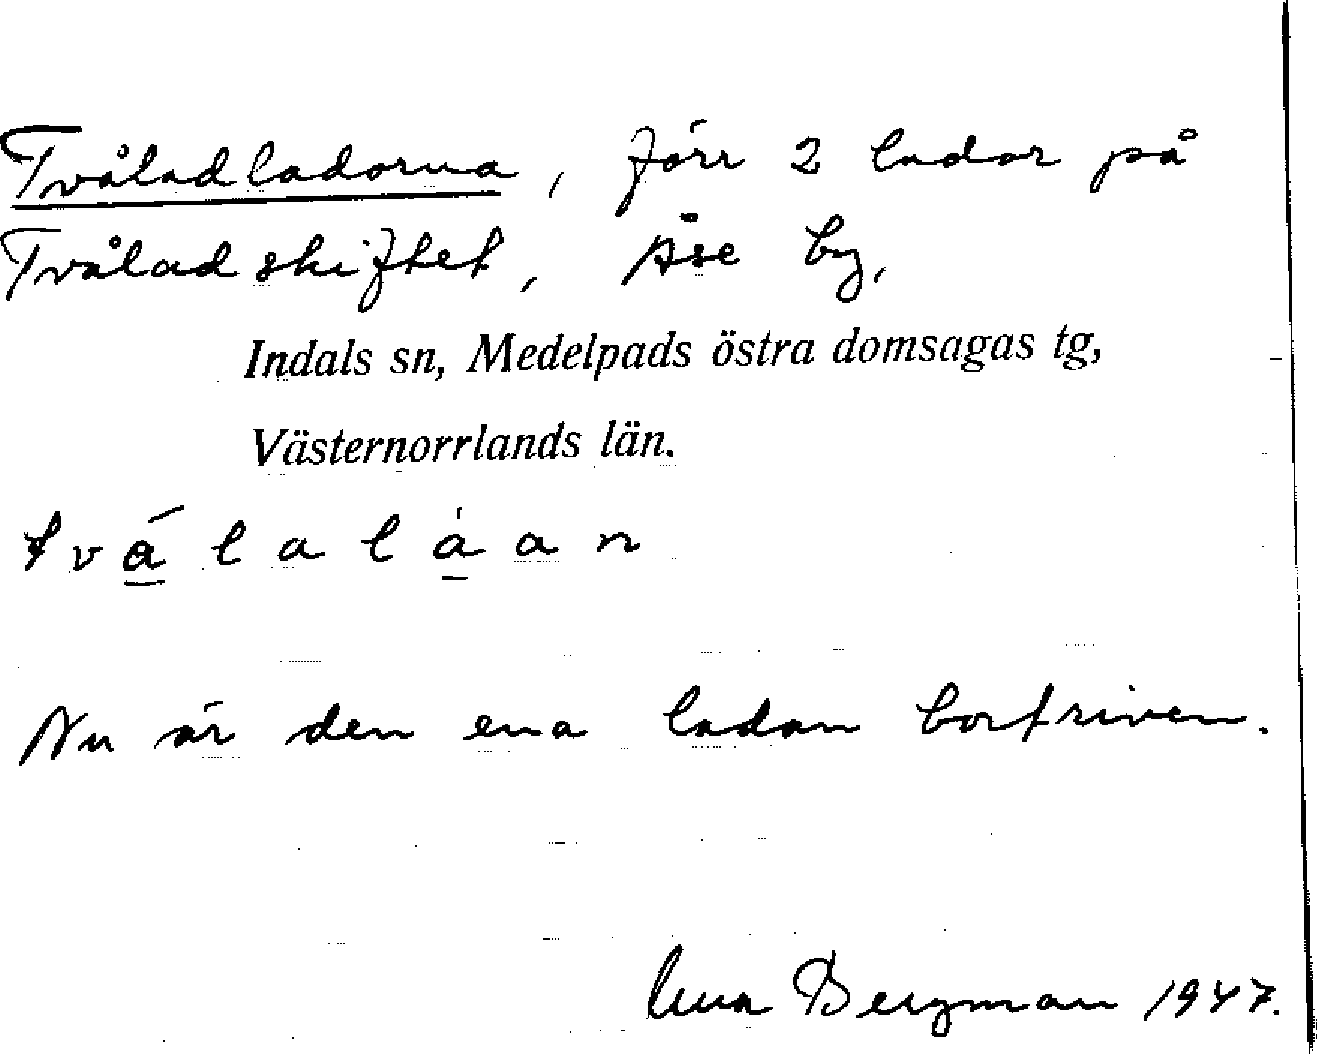 Tvåladladorna, förr 2 lador på
Tvåladskiftet, Åse by,
Indals sn, Medelpads östra domsagas tg,
Västernorrlands län.
tválalàan
Nu är den ena ladan bortriven.
Bergman 1947.